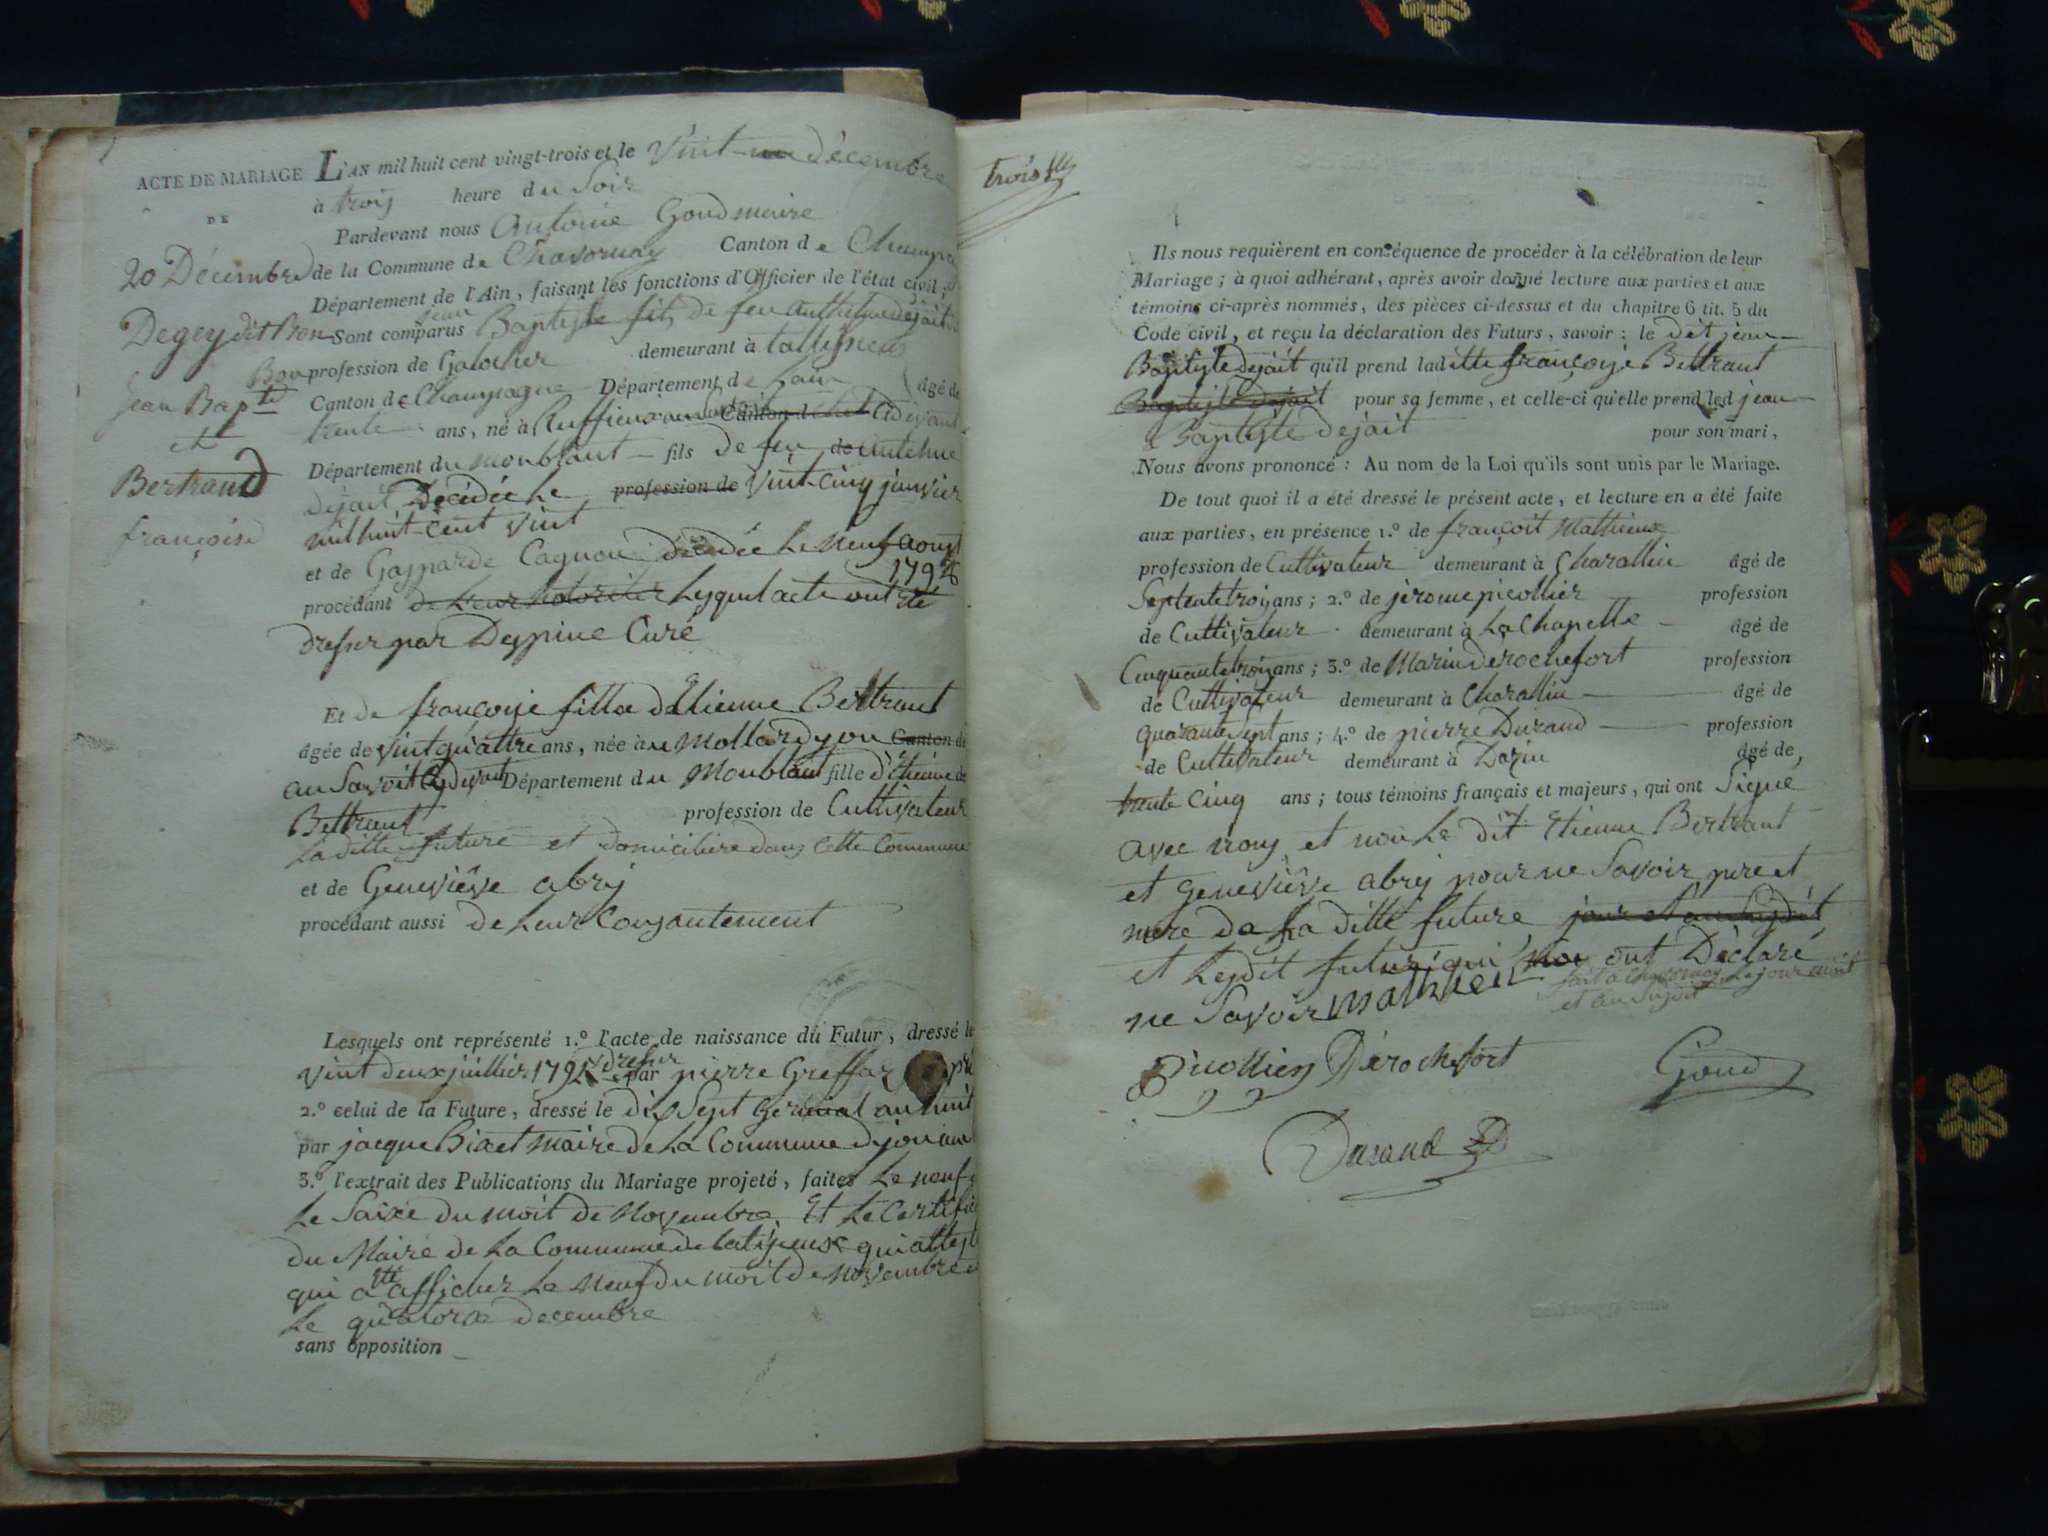 ACTE DE MARIAGE
DE
20 Décembre
Degey dit Bon
Bon
Jean Bapte
et
Bertrand
françoise
L'AN mil huit cent vingt-trois et le Vint décembre
à trois heure du Soir
Pardevant nous Antoine Goud maire
de la Commune de Chavornay Canton de Champagne
Département de l'Ain, faisant les fonctions d'Officier de l'état civil;
Sont comparus jean Baptiste fils de feu dejait
profession de Galocher demeurant à
Canton de Champagne Département de Lain âgé de
trente ans, né à Ruffieux Canton de
Département du monblant fils De feu
dejait Décédée Le profession de Vint-Cinq janvier
mil huit-cent vint
et de Gasparde Cagnon décédée Le neuf aoust
procédant Lesquel acte ont été
dresser par Despine Curé
Et de françoise fille d'Etienne Bertrant
âgée de vint quattre ans, née à Mollard Canton de
au Savoit Cydevant Département du Monblant fille d'Etienne
Bertrant profession de Cultivateur
La ditte future et domiciliere dans Cette Commune
et de Geneviève abry
procédant aussi de Leur Consantement
Lesquels ont représenté 1.º l'acte de naissance du Futur, dressé le
Vint deux juillier dresser par pierre Greffaz
2.º celui de la Future, dressé le dix Sept Germinal an huit
par jacque maire de La Commune
3.º l'extrait des Publications du Mariage projeté, faites Le neuf
Le Saize du moit de Novembre Et Le Certificat
du Maire de La Commune de qui atteste
qui a été afficher Le Neuf du moit de Novembre
Le quatorze decembre
sans opposition
trois
Ils nous requièrent en conséquence de procéder à la célébration de leur
Mariage; à quoi adhérant, après avoir donné lecture aux parties et aux
témoins ci-après nommés, des pièces ci-dessus et du chapitre 6 tit. 5 du
Code civil, et reçu la déclaration des Futurs, savoir: le dit jean
Baptiste dejait qu'il prend laditte françoise Bertrant
Baptiste dejait pour sa femme, et celle-ci qu'elle prend led jean
Baptiste dejait pour son mari,
Nous avons prononcé: Au nom de la Loi qu'ils sont unis par le Mariage.
De tout quoi il a été dressé le présent acte, et lecture en a été faite
aux parties, en présence 1.º de françoit Mathieux
profession de Cultivateur demeurant à Charallin âgé de
Septente troy ans; 2.º de jerome picollier profession
de Cultivateur demeurant à La Chapelle âgé de
Cinquante troy ans; 3.º de Marin derochefort profession
de Cultivateur demeurant à Charallin âgé de
quarante Sept ans; 4.º de pierre Durand profession
de Cultivateur demeurant à Dazin âgé de
trente Cinq ans; tous témoins français et majeurs, qui ont Signé
avec nous et non Le dit Etienne Bertrant
et Geneviève abry pour ne Savoir pere et
mere de La ditte future jour et an
et Ledit futur qui ont Déclaré
ne Savoir
fait à Chavornay Le jour moit
et an Susdit
Mathieu
Picollier
Dérochefort
Goud
Durand